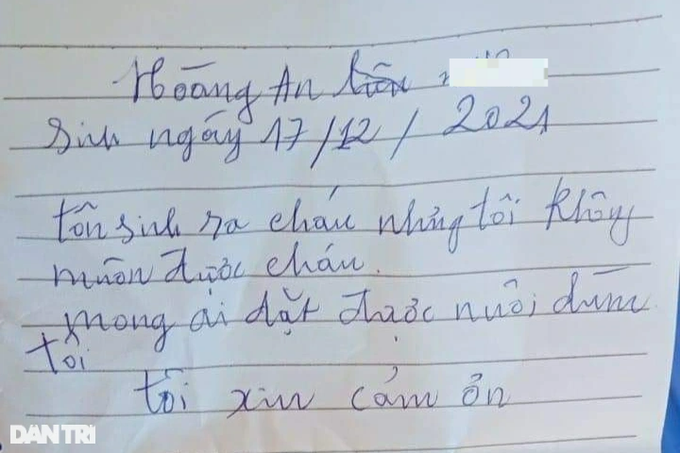 Hoàng An
Sinh ngáy 17/12/2021
tôi sinh ra cháu nhưng tôi không
muôn được cháu.
mong ai dặt được nuôi dùm
tôi
tôi xin cảm ởn
DÂN TRÍ